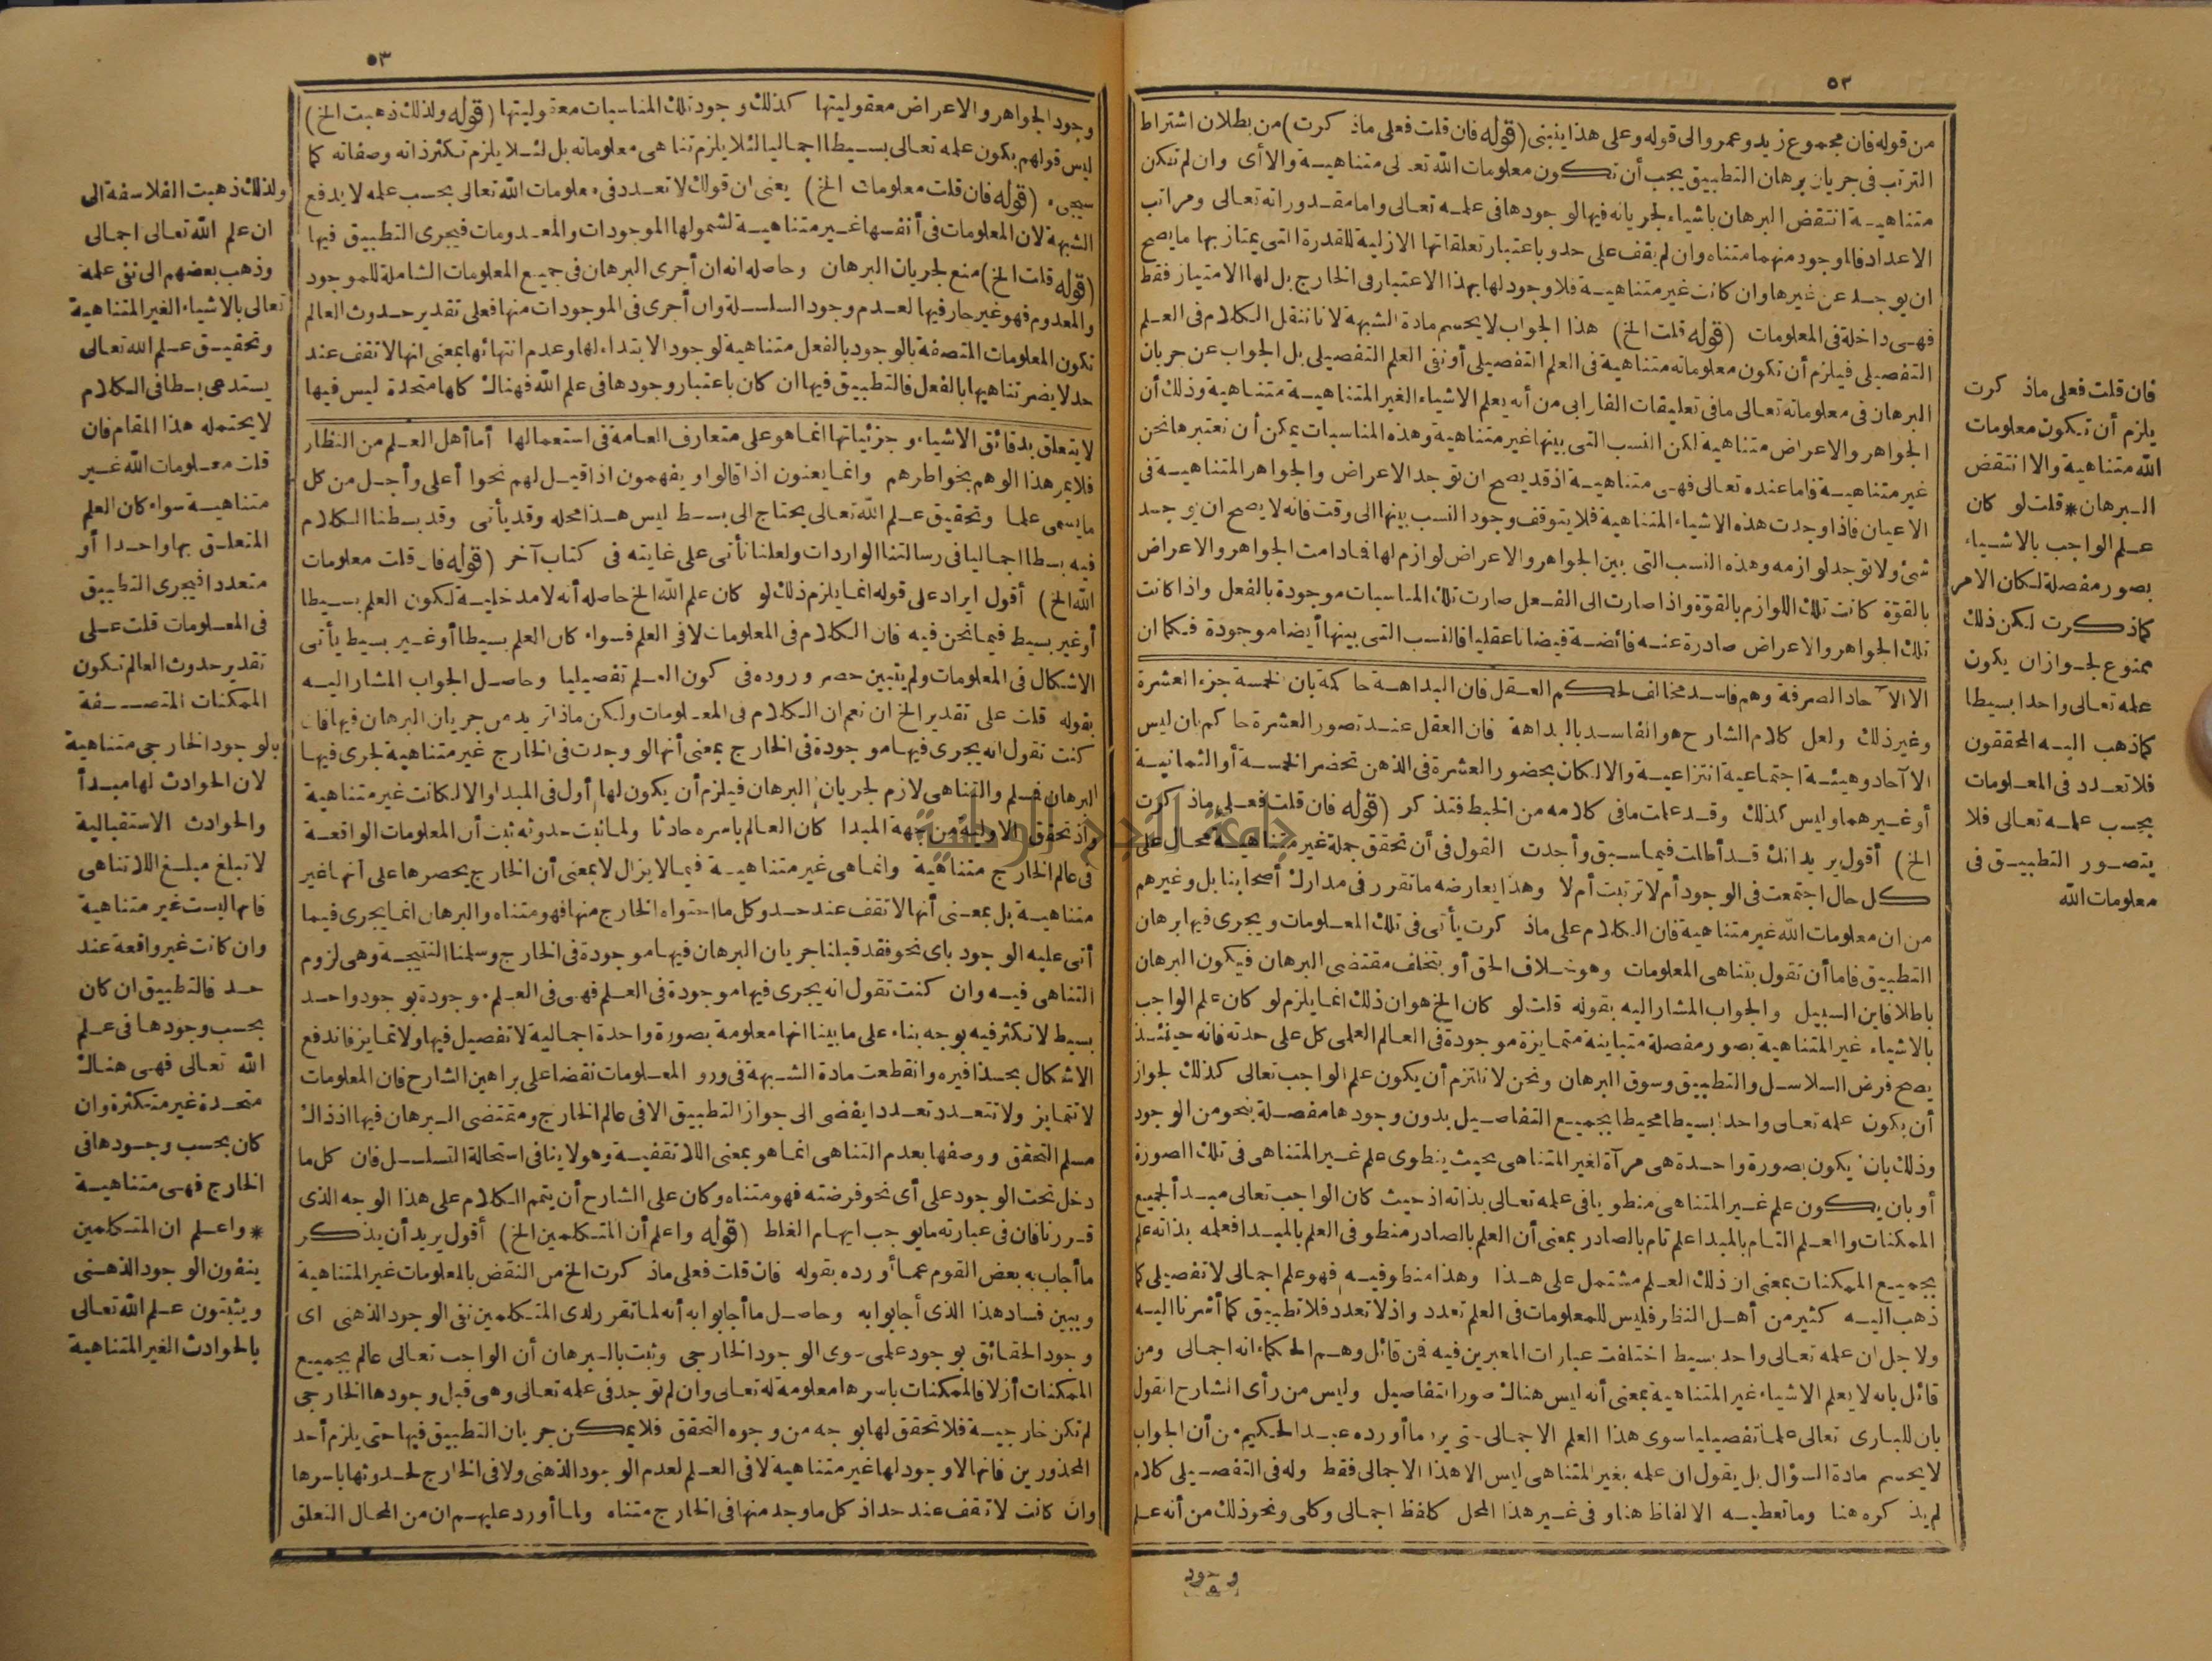 ٥٢
من قوله فان مجموع زيد وعمر والى قوله وعلى هذا ينبنى (قوله فان قلت فعلى ماذكرت) من بطلان اشتراط
الترتب فى جريان برهان التطبيق يجب أن تكون معلومات الله تعالى متناهية والا أى وان لم تكن
متناهية انتقض البرهان باشياء لجريانه فيها لوجودها فى علمه تعالى واما مقدوراته تعالى ومراتب
الاعداد فالموجود منهما متناه وان لم يقف على حد وباعتبار تعلقاتها الازلية للقدرة التى يمتاز بها ما يصح
ان يوجد عن غيرها وان كانت غير متناهية فلا وجود لها بهذا الاعتبار فى الخارج بل لها الامتياز فقط
فهى داخلة فى المعلومات (قوله قلت الخ) هذا الجواب لا يحسم مادة الشبهة لانا ننقل الكلام فى العلم
التفصيلى فيلزم أن تكون معلوماته متناهية فى العلم التفصيلى أو نفى العلم التفصيلى بل الجواب عن جريان
البرهان فى معلوماته تعالى ما فى تعليقات الفارابى من أنه يعلم الاشياء الغير المتناهية متناهية وذلك أن
الجواهر والاعراض متناهية لكن النسب التى بينها غير متناهية وهذه المناسبات يمكن أن نعتبرها نحن
غير متناهية فاما عنده تعالى فهى متناهية اذ قد يصح ان توجد الاعراض والجواهر المتناهية فى
الاعيان فاذا وجدت هذه الاشياء المتناهية فلا يتوقف وجود النسب بينها الى وقت فانه لا يصح ان يوجد
شئ ولا توجد لوازمه وهذه النسب التى بين الجواهر والاعراض لوازم لها فما دامت الجواهر والاعراض
بالقوّة كانت تلك اللوازم بالقوّة واذا صارت الى الفعل صارت تلك المناسبات موجودة بالفعل واذا كانت
تلك الجواهر والاعراض صادرة عنه فائضة فيضانا عقليا فالنسب التى بينها أيضا موجودة فكما ان
الا الآحاد الصرفة وهم فاسد مخالف لحكم العقل فان البداهة حاكمة بان الخمسة جزء العشرة
وغير ذلك ولعل كلام الشارح هو الفاسد بالبداهة فان العقل عند تصور العشرة حاكم بان ليس
الا آحاد وهيئة اجتماعية انتزاعية والا لكان بحضور العشرة فى الذهن تحضر الخمسة أو الثمانية
أو غيرهما وليس كذلك وقد علمت ما فى كلامه من الخبط فتذكر (قوله فان قلت فعلى ماذكرت
الخ) أقول يريد انك قد أطلت فيما سبق وأجدت القول فى أن تحقق جملة غير متناهية محال على
كل حال اجتمعت فى الوجود أم لا ترتبت أم لا وهذا يعارضه ما تقرر فى مدارك أصحابنا بل وغيرهم
من ان معلومات الله غير متناهية فان الكلام على ماذكرت يأتى فى تلك المعلومات ويجرى فيها برهان
التطبيق فاما أن تقول بتناهى المعلومات وهو خلاف الحق أو بتخلف مقتضى البرهان فيكون البرهان
باطلا فاين السبيل والجواب المشار اليه بقوله قلت لو كان الخ هو ان ذلك انما يلزم لو كان علم الواجب
بالاشياء غير المتناهية بصور مفصلة متباينة متمايزة موجودة فى العالم العلمى كل على حدته فانه حينئذ
يصح فرض السلاسل والتطبيق وسوق البرهان ونحن لا نلتزم أن يكون علم الواجب تعالى كذلك لجواز
أن يكون علمه تعالى واحدا بسيطا محيطا بجميع التفاصيل بدون وجودها مفصلة بنحو من الوجود
وذلك بان يكون بصورة واحدة هى مرآة لغير المتناهى بحيث ينطوى علم غير المتناهى فى تلك الصورة
أو بان يكون علم غير المتناهى منطويا فى علمه تعالى بذاته اذ حيث كان الواجب تعالى مبدأ لجميع
الممكنات والعلم التام بالمبدا علم تام بالصادر بمعنى أن العلم بالصادر منطو فى العلم بالمبدا فعلمه بذاته علم
بجميع الممكنات بمعنى ان ذلك العلم مشتمل على هذا وهذا منطو فيه فهو علم اجمالى لا تفصيلى كما
ذهب اليه كثير من أهل النظر فليس للمعلومات فى العلم تعدد واذ لا تعدد فلا تطبيق كما أشرنا اليه
ولاجل ان علمه تعالى واحد بسيط اختلفت عبارات المعبرين فيه فمن قائل وهم الحكماء انه اجمالى ومن
قائل بانه لا يعلم الاشياء غير المتناهية بمعنى أنه ليس هناك صور التفاصيل وليس من رأى الشارح القول
بان للبارى تعالى علما تفصيليا سوى هذا العلم الاجمالى حتى يرد ما أورده عبد الحكيم من أن الجواب
لا يحسم مادة السؤال بل يقول ان علمه بغير المتناهى ليس الا هذا الاجمالى فقط وله فى التفصيلى كلام
لم يذكره هنا وما تعطيه الالفاظ هنا وفى غير هذا المحل كلفظ اجمالى وكلى ونحو ذلك من أنه علم
وجود
فان قلت فعلى ماذكرت
يلزم أن تكون معلومات
الله متناهية والا انتقض
البرهان * قلت لو كان
علم الواجب بالاشياء
بصور مفصلة لكان الامر
كما ذكرت لكن ذلك
ممنوع لجواز ان يكون
علمه تعالى واحدا بسيطا
كما ذهب اليه المحققون
فلا تعدد فى المعلومات
بحسب علمه تعالى فلا
يتصور التطبيق فى
معلومات الله
٥٣
وجود الجواهر والاعراض معقوليتها كذلك وجود تلك المناسبات معقوليتها (قوله ولذلك ذهبت الخ)
ليس قولهم بكون علمه تعالى بسيطا اجماليا لئلا يلزم تناهى معلوماته بل لئلا يلزم تكثر ذاته وصفاته كما
سيجىء (قوله فان قلت معلومات الخ) يعنى ان قولك لا تعدد فى معلومات الله تعالى بحسب علمه لا يدفع
الشبهة لان المعلومات فى أنفسها غير متناهية لشمولها الموجودات والمعدومات فيجرى التطبيق فيها
(قوله قلت الخ) منع لجريان البرهان وحاصله انه ان أجرى البرهان فى جميع المعلومات الشاملة للموجود
والمعدوم فهو غير جار فيها لعدم وجود السلسلة وان أجرى فى الموجودات منها فعلى تقدير حدوث العالم
تكون المعلومات المتصفة بالوجود بالفعل متناهية لوجود الابتداء لها وعدم انتهائها بمعنى انها لا تقف عند
حد لا يضر تناهيها بالفعل فالتطبيق فيها ان كان باعتبار وجودها فى علم الله فهناك كلها متحدة ليس فيها
لا يتعلق بدقائق الاشياء وجزئياتها انما هو على متعارف العامة فى استعمالها أما أهل العلم من النظار
فلا يمر هذا الوهم بخواطرهم وانما يعنون اذا قالوا ويفهمون اذا قيل لهم نحوا أعلى وأجل من كل
ما يسمى علما وتحقيق علم الله تعالى يحتاج الى بسط ليس هذا محله وقد يأتى وقد بسطنا الكلام
فيه بسطا اجماليا فى رسالتنا الواردات ولعلنا نأتى على غايته فى كتاب آخر (قوله فان قلت معلومات
الله الخ) أقول ايراد على قوله انما يلزم ذلك لو كان علم الله الخ حاصله أنه لا مدخلية لكون العلم بسيطا
أو غير بسيط فيما نحن فيه فان الكلام فى المعلومات لا فى العلم فسواء كان العلم بسيطا أو غير بسيط يأتى
الاشكال فى المعلومات ولم يتبين حصر وروده فى كون العلم تفصيليا وحاصل الجواب المشار اليه
بقوله قلت على تقدير الخ ان نعم ان الكلام فى المعلومات ولكن ماذا تريد من جريان البرهان فيها فان
كنت تقول انه يجرى فيها موجودة فى الخارج بمعنى أنها لو وجدت فى الخارج غير متناهية لجرى فيها
البرهان فسلم والتناهى لازم لجريان البرهان فيلزم أن يكون لها أول فى المبدا والا لكانت غير متناهية
واذ تحقق الاولية من جهة المبدا كان العالم باسره حادثا ولما ثبت حدوثه ثبت أن المعلومات الواقعة
فى عالم الخارج متناهية وانما هى غير متناهية فيما لا يزال لا بمعنى أن الخارج يحصرها على أنها غير
متناهية بل بمعنى أنها لا تقف عند حد وكل ما احتواه الخارج منها فهو متناه والبرهان انما يجرى فيما
أتى عليه الوجود باى نحو فقد قبلنا جريان البرهان فيها موجودة فى الخارج وسلمنا النتيجة وهى لزوم
التناهى فيه وان كنت تقول انه يجرى فيها موجودة فى العلم فهى فى العلم موجودة بوجود واحد
بسيط لا تكثر فيه بوجه بناء على ما بينا انها معلومة بصورة واحدة اجمالية لا تفصيل فيها ولا تمايز فاندفع
الاشكال بحذافيره وانقطعت مادة الشبهة فى ورود المعلومات نقضا على براهين الشارح فان المعلومات
لا تتمايز ولا تتعدد تعددا يفضى الى جواز التطبيق الا فى عالم الخارج ومقتضى البرهان فيها اذ ذاك
مسلم التحقق ووصفها بعدم التناهى انما هو بمعنى اللاتقفية وهو لا ينافى استحالة التسلسل فان كل ما
دخل تحت الوجود على أى نحو فرضته فهو متناه وكان على الشارح أن يتمم الكلام على هذا الوجه الذى
قررنا فان فى عبارته ما يوجب ايهام الغلط (قوله واعلم أن المتكلمين الخ) أقول يريد أن يذكر
ما أجاب به بعض القوم عما أورده بقوله فان قلت فعلى ماذكرت الخ من النقض بالمعلومات غير المتناهية
ويبين فساد هذا الذى أجابوا به وحاصل ما أجابوا به أنه لما تقرر لدى المتكلمين نفى الوجود الذهنى اى
وجود الحقائق بوجود علمى سوى الوجود الخارجى وثبت بالبرهان أن الواجب تعالى عالم بجميع
الممكنات أزلا فالممكنات باسرها معلومة له تعالى وان لم توجد فى علمه تعالى وهى قبل وجودها الخارجى
لم تكن خارجية فلا تحقق لها بوجه من وجوه التحقق فلا يمكن جريان التطبيق فيها حتى يلزم أحد
المحذورين فانها لا وجود لها غير متناهية لا فى العلم لعدم الوجود الذهنى ولا فى الخارج لحدوثها باسرها
وان كانت لا تقف عند حد اذ كل ما وجد منها فى الخارج متناه ولما أورد عليهم ان من المحال التعلق
ولذلك ذهبت الفلاسفة الى
ان علم الله تعالى اجمالى
وذهب بعضهم الى نفى علمه
تعالى بالاشياء الغير المتناهية
وتحقيق علم الله تعالى
يستدعى بسطا فى الكلام
لا يحتمله هذا المقام فان
قلت معلومات الله غير
متناهية سواء كان العلم
المتعلق بها واحدا أو
متعددا فيجرى التطبيق
فى المعلومات قلت على
تقدير حدوث العالم تكون
الممكنات المتصفة
بالوجود الخارجى متناهية
لان الحوادث لها مبدأ
والحوادث الاستقبالية
لا تبلغ مبلغ اللاتناهى
فانها ليست غير متناهية
وان كانت غير واقعة عند
حد فالتطبيق ان كان
بحسب وجودها فى علم
الله تعالى فهى هناك
متحدة غير متكثرة وان
كان بحسب وجودها فى
الخارج فهى متناهية
* واعلم ان المتكلمين
ينفون الوجود الذهنى
ويثبتون علم الله تعالى
بالحوادث الغير المتناهية
جامعة النجاح الوطنية